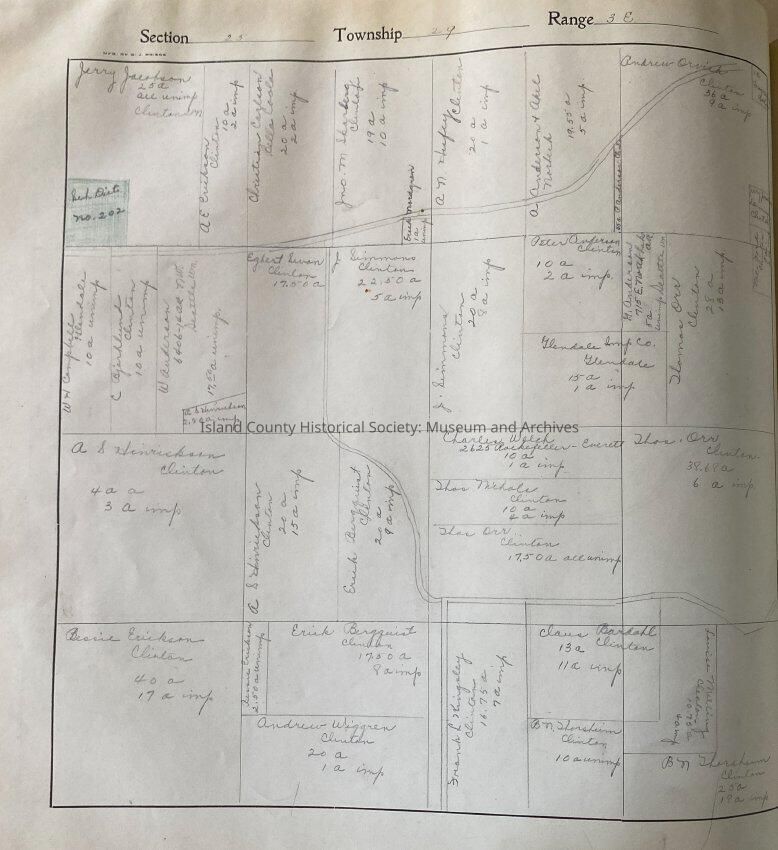 Section 23 Township 29 Range 3 E
Jerry Jacobson
25 a
all unimp
Clinton
Sch Dist
No. 202
A E Erickson
Clinton
10 a
2 a imp
Christian Carlson
20 a
2 a imp
Jno. M
Clinton
19 a
10 a imp
Erick Nordgren
1 a
unimp
A N
Clinton
20 a
1 a imp
A Anderson & Axel
19.55 a
5 a imp
Andrew Orvick
Clinton
36 a
9 a imp
W H Campbell
Glendale
10 a unimp
C Bjorklund
Clinton
10 a unimp
W Anderson
Seattle Wn
17.50 a unimp.
A S Hinrickson
2.50 a unimp
Egbert
Clinton
17.50 a
Simmons
Clinton
22.50 a
5 a imp
Simmons
Clinton
20 a
8 a imp
Peter Anderson
Clinton
10 a
2 a imp.
G. Anderson
5 a
unimp Seattle Wn
Thomas Orr
Clinton
28 a
13 a imp
Glendale Imp Co.
Glendale
15 a
1 a imp
Island County Historical Society: Museum and Archives
A S Hinrickson
Clinton
40 a
3 a imp
A S Hinrickson
Clinton
20 a
15 a imp
Erick Bergquist
Clinton
20 a
9 a imp
Charles Welch
2625 Rockefeller - Everett
10 a
1 a imp
Thos Nichols
Clinton
10 a
a imp
Thos Orr
Clinton
17.50 a all unimp
Thos. Orr
Clinton
38.68 a
6 a imp
Bessie Erickson
Clinton
40 a
17 a imp
Bessie Erickson
2.50 a unimp
Erick Bergquist
Clinton
17.50 a
8 a imp
Andrew Wiggren
Clinton
20 a
1 a imp
Frank L Kingsley
Clinton
16.75 a
7 a imp
Claus Bardahl
Clinton
13 a
11 a imp
B N Thorsheim
Clinton
10 a unimp
B N Thorsheim
Clinton
25 a
18 a imp